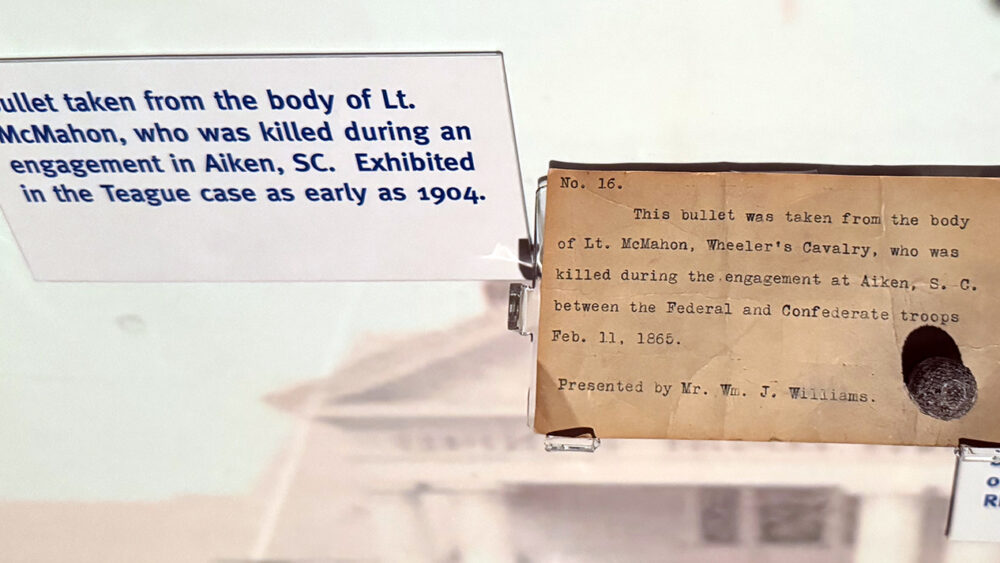 ullet taken from the body of Lt.
McMahon, who was killed during an
engagement in Aiken, SC. Exhibited
in the Teague case as early as 1904.
No. 16.
This bullet was taken from the body
of Lt. McMahon, Wheeler's Cavalry, who was
killed during the engagement at Aiken, S. C.
between the Federal and Confederate troops
Feb. 11, 1865.
Presented by Mr. Wm. J. Williams.
o
R